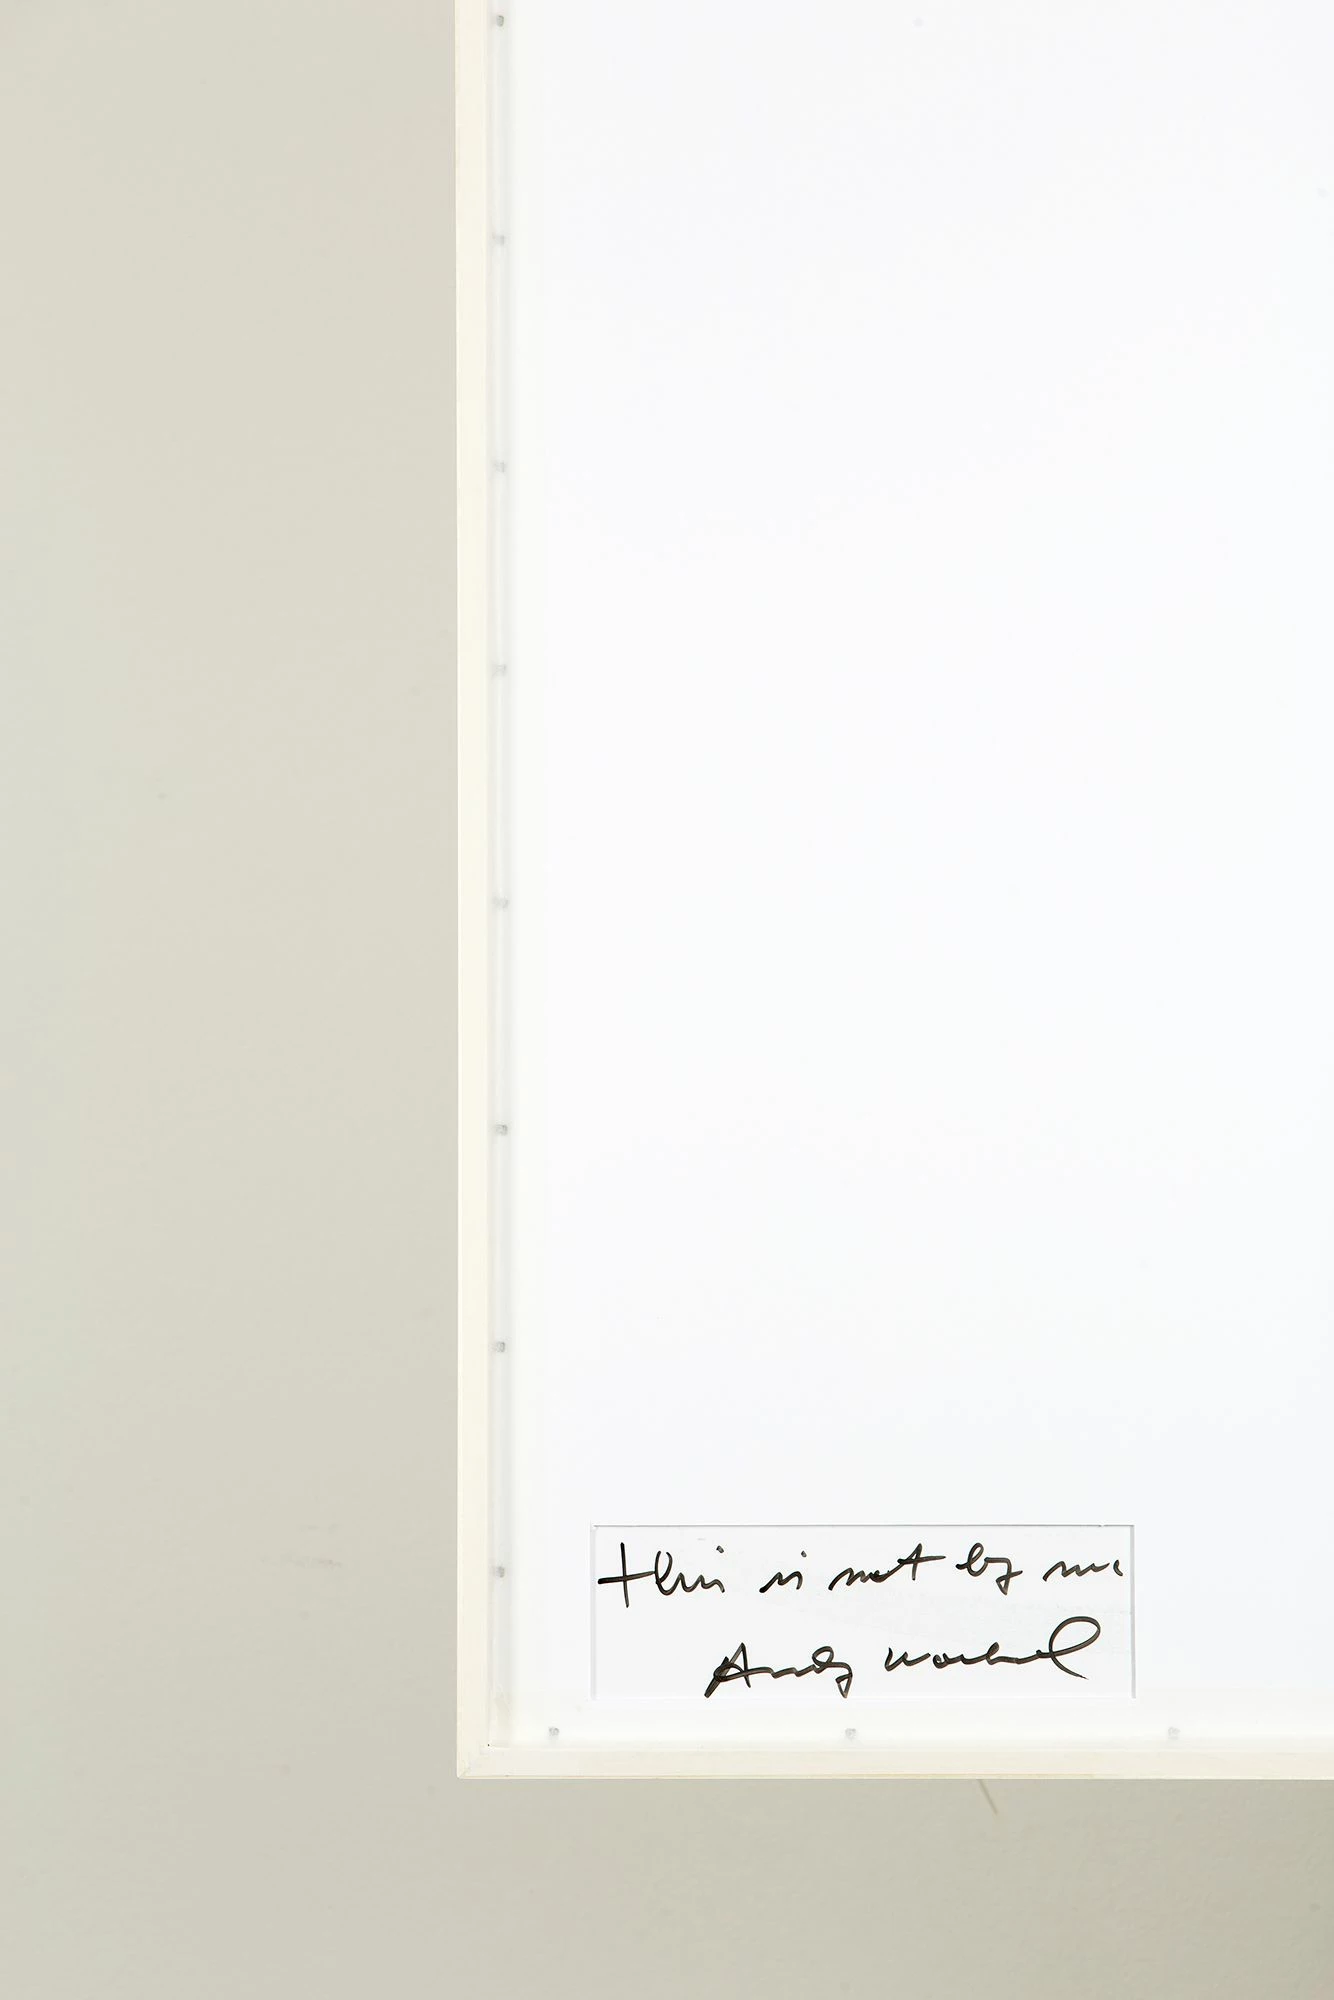 this is not by me
Andy Warhol